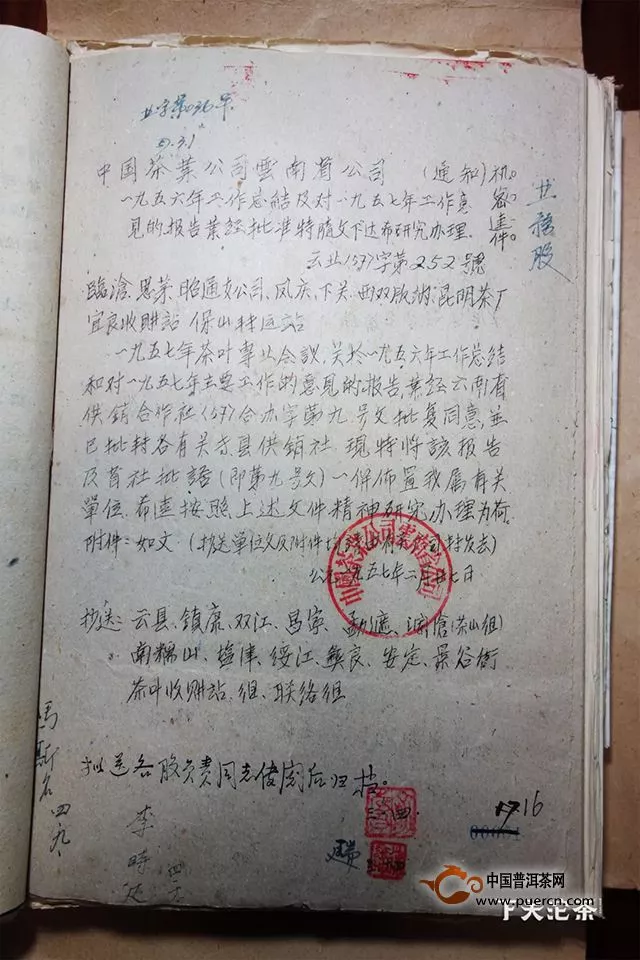 业字第036号
中国茶葉公司雲南省公司 （通知）
机密速件
业务股
一九五六年工作总結及对一九五七年工作意
見的报告業经批准特随文下达希研究办理。
云业(57)字第252號
臨滄、思茅、昭通支公司、凤庆、下关、西双版納、昆明茶厂
宜良收購站 保山轉运站
一九五七年茶叶專业会议，关於一九五六年工作总結
和对一九五七年主要工作的意見的报告，業经云南省
供銷合作社(57)合办字第九号文批复同意，並
已批轉各有关专县供銷社。現特将該报告
及省社批語（即第九号文）一併佈置我属有关
單位，希遵按照上述文件精神研究办理为荷。
附件：如文
公元一九五七年二月廿七日
中國茶葉公司雲南省公司
抄送：云县、镇康、双江、昌宁、勐遮、澜滄(茶山組)
南糯山、塩津、绥江、彝良、安定、景谷街
茶叶收購站、組、联络組
拟送各股负责同志传閲后归档。
三 四
馬斯名 四九、
李時
16
中国普洱茶网
www.puercn.com
下关沱茶